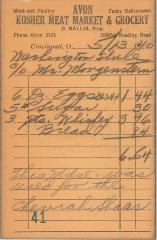 Meat and Poultry AVON Fancy Delicatessen
KOSHER MEAT MARKET & GROCERY
D. MALLIN, Prop.
Phone AVon 3505 Reading Road
Cincinnati, O. 5/13 1940
Washington
To Mr. Morgenstern
6 Dz Eggs 24 1 44
5# Sugar 30
3 pts. Whiskey 3 96
Bread 84
6.54
This was
used for the
Chevrah Shas
41